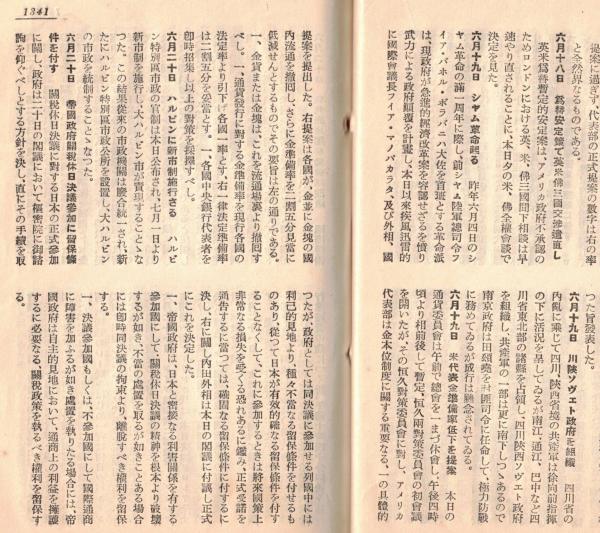 1341
提案に過ぎず、代表部の正式提案の數字は右の率
と全然異なるものである。
六月十八日　爲替安定策で英米佛三國交渉遠直し
英米爲替暫定的安定案は、アメリカ政府不承認の
ためロンドンにおける英、米、佛三國間下相談は早
速やり直されることに、本日夕の米、佛全權會談で
決定を見た。
六月十九日　シヤム革命起る　昨年六月四日のシ
ヤム革命の滿一周年に際し、前シヤム陸軍總司令フ
イア・バホル・ポラパニハ大佐を首班とする革命派
は、現政府が急進的經濟改革案を容認せざるを憤り
武力による政府顚覆を計畫し、本日以來疾風迅雷的
に國際會議長フイア・マノパカラタ、及び外相、國
つた旨發表した。
六月十九日　川陜ソヴエト政府を組織　四川省の
內亂に乘じて四川、陜西省境の共產軍は徐向前指揮
の下に活況を呈してゐるが南江、通江、巴中など四
川省東北部の諸縣を占領し、四川陜西ソヴエト政府
を組織し、共產軍の一部は更に南下しつゝあるので
南京政府は田頌堯を剿匪司令に任命して極力防戰
に務めてゐるが成行は懸念されてゐる。
六月十九日　米代表金準備率低下を提案　本日の
通貨委員會は午前中總會を一まづ休會し、午後四時
頃より相前後して暫定、恒久兩對策委員會の初會議
を開いたが、その恒久對策委員會に對し、アメリカ
代表部は金本位制度に關する重要なる、一の具體的
提案を提出した。右提案は各國が、金並に金塊の國
內流通を撤回し、さらに金準備率を二割五分見當に
低減せんとするものでその要旨は左の通りである。
一、金貨または金塊は、これを流通場裏より撤回す
べし。一、通貨發行に對する金準備率を現行各國の
法定率より引下げ各國一率とす、右一律法定準備率
は二割五分を妥當とす。一、各國中央銀行代表者を
卽時招集し以上の對策を採擇すべし。
六月二十日　ハルビンに新市制施行さる　ハルビ
ン特別區市政の官制は本日公布され七月一日より
新市制を施行し、大ハルビン市が實現することゝな
つた。この結果從來の市政機關は聯合統一され、新
たにハルビン特別區市政公所を設置し、大ハルビン
の市政を統制することゝなつた。
六月二十日　帝國政府關稅休日決議參加に留保條
件を付す　關稅休日決議に對する日本の正式參加
に關し、政府は二十日の閣議において樞密院に御諮
詢を仰ぐべしとする方針を決し、直にその手續を取
つたが政府としては同決議に參加せる列國中には
利己的見地より、種々不當なる留保條件を付せるも
のあり、從つて日本が有效的確なる留保條件を付す
ることなくして、これに參加するときは將來國策上
非常なる損失を受くる恐れあるに鑑み、正式受諾を
通吿するに當つては、確固なる留保條件を付するに
決し、右に關し內田外相は本日の閣議に付議し正式
にこれを決定した。
一、帝國政府は、日本と密接なる利害關係を有する
參加國にして、關稅休日決議の精神を根本より破壞
するが如き、不當の處置を取るが如きことある場合
には卽時同決議の拘束より、離脫すべき權利を留保
する。
一、決議參加國もしくは、不參加國にして國際通商
に障害を加ふるが如き處置を執りたる場合には、帝
國政府は自主的見地において、通商上の利益を擁護
するに必要なる、關稅政策を執るべき權利を留保す